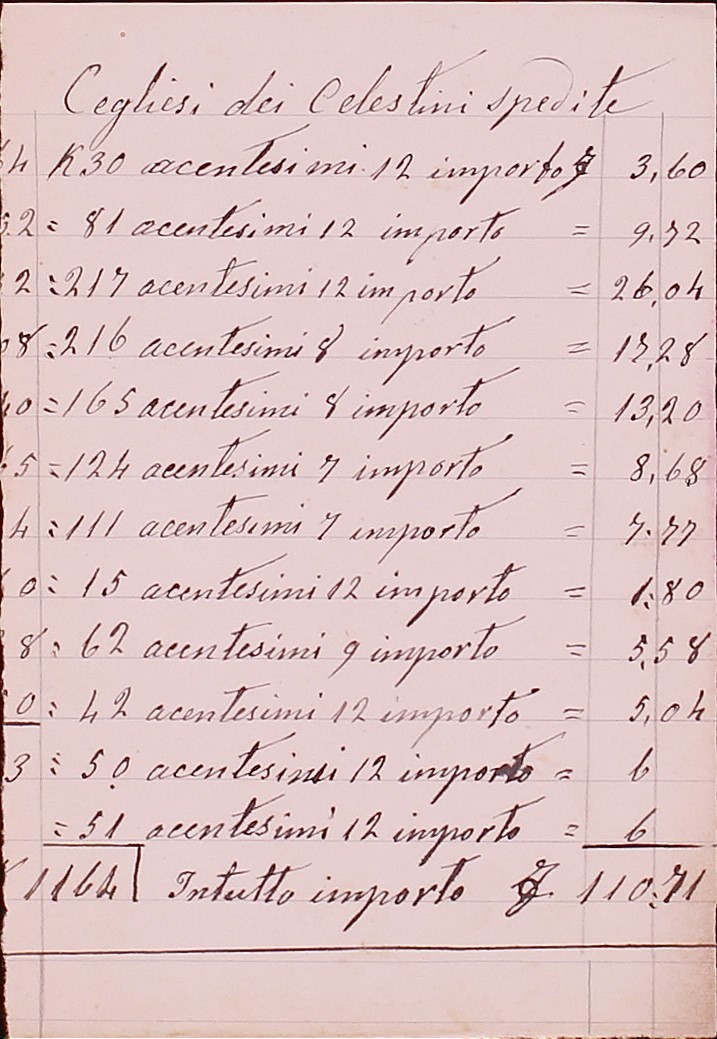 Cegliesi dei Celestini spedite
4 K30 acentesimi 12 importo £ 3,60
52 = 81 acentesimi 12 importo = 9,72
2 = 217 acentesimi 12 importo = 26,04
08 = 216 acentesimi 8 importo = 17,28
40 = 165 acentesimi 8 importo = 13,20
5 = 124 acentesimi 7 importo = 8,68
4 = 111 acentesimi 7 importo = 7.77
0 = 15 acentesimi 12 importo = 1.80
8 = 62 acentesimi 9 importo = 5,58
0 = 42 acentesimi 12 importo = 5,04
3 = 50 acentesimi 12 importo = 6
= 51 acentesimi 12 importo = 6
1164 Intutto importo £ 110.71